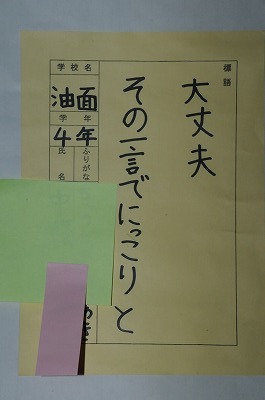 標語
大丈夫
その一言でにっこりと
学校名
油面
学年
4年
ふりがな
氏名